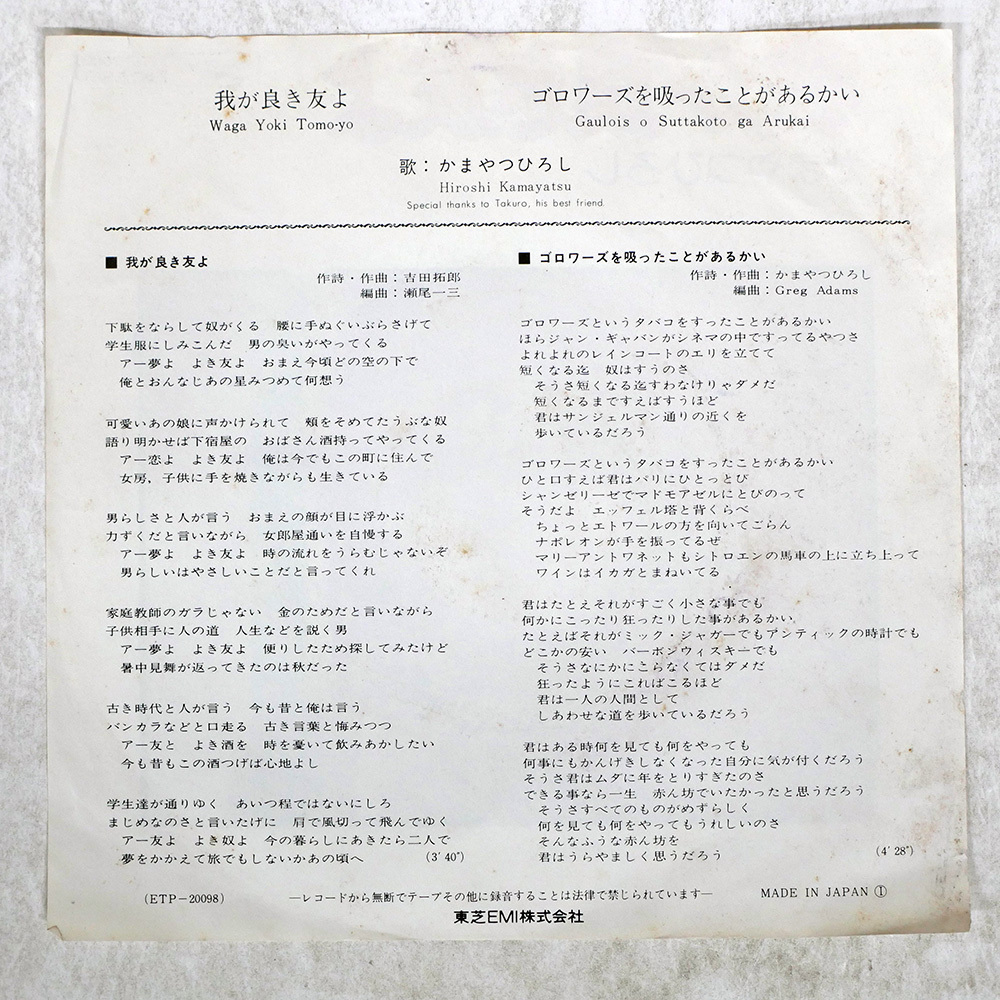 我が良き友よ
Waga Yoki Tomo-yo
ゴロワーズを吸ったことがあるかい
Gaulois o Suttakoto ga Arukai
歌：かまやつひろし
Hiroshi Kamayatsu
Special thanks to Takuro, his best friend.
■ 我が良き友よ
作詩・作曲：吉田拓郎
編曲：瀬尾一三
下駄をならして奴がくる　腰に手ぬぐいぶらさげて
学生服にしみこんだ　男の臭いがやってくる
アー夢よ　よき友よ　おまえ今頃どの空の下で
俺とおんなじあの星みつめて何想う
可愛いあの娘に声かけられて　頬をそめてたうぶな奴
語り明かせば下宿屋の　おばさん酒持ってやってくる
アー恋よ　よき友よ　俺は今でもこの町に住んで
女房，子供に手を焼きながらも生きている
男らしさと人が言う　おまえの顔が目に浮かぶ
力ずくだと言いながら　女郎屋通いを自慢する
アー夢よ　よき友よ　時の流れをうらむじゃないぞ
男らしいはやさしいことだと言ってくれ
家庭教師のガラじゃない　金のためだと言いながら
子供相手に人の道　人生などを説く男
アー夢よ　よき友よ　便りしたため探してみたけど
暑中見舞が返ってきたのは秋だった
古き時代と人が言う　今も昔と俺は言う
バンカラなどと口走る　古き言葉と悔みつつ
アー友と　よき酒を　時を憂いて飲みあかしたい
今も昔もこの酒つげば心地よし
学生達が通りゆく　あいつ程ではないにしろ
まじめなのさと言いたげに　肩で風切って飛んでゆく
アー友よ　よき奴よ　今の暮らしにあきたら二人で
夢をかかえて旅でもしないかあの頃へ
(3′40″)
■ ゴロワーズを吸ったことがあるかい
作詩・作曲：かまやつひろし
編曲：Greg Adams
ゴロワーズというタバコをすったことがあるかい
ほらジャン・ギャバンがシネマの中ですってるやつさ
よれよれのレインコートのエリを立てて
短くなる迄　奴はすうのさ
そうさ短くなる迄すわなけりゃダメだ
短くなるまですえばすうほど
君はサンジェルマン通りの近くを
歩いているだろう
ゴロワーズというタバコをすったことがあるかい
ひと口すえば君はパリにひとっとび
シャンゼリーゼでマドモアゼルにとびのって
そうだよ　エッフェル塔と背くらべ
ちょっとエトワールの方を向いてごらん
ナポレオンが手を振ってるぜ
マリーアントワネットもシトロエンの馬車の上に立ち上って
ワインはイカガとまねいてる
君はたとえそれがすごく小さな事でも
何かにこったり狂ったりした事があるかい
たとえばそれがミック・ジャガーでもアンティックの時計でも
どこかの安い　バーボンウィスキーでも
そうさなにかにこらなくてはダメだ
狂ったようにこればこるほど
君は一人の人間として
しあわせな道を歩いているだろう
君はある時何を見ても何をやっても
何事にもかんげきしなくなった自分に気が付くだろう
そうさ君はムダに年をとりすぎたのさ
できる事なら一生　赤ん坊でいたかったと思うだろう
そうさすべてのものがめずらしく
何を見ても何をやってもうれしいのさ
そんなふうな赤ん坊を
君はうらやましく思うだろう
(4′28″)
(ETP-20098)
―レコードから無断でテープその他に録音することは法律で禁じられています―
MADE IN JAPAN ①
東芝EMI株式会社